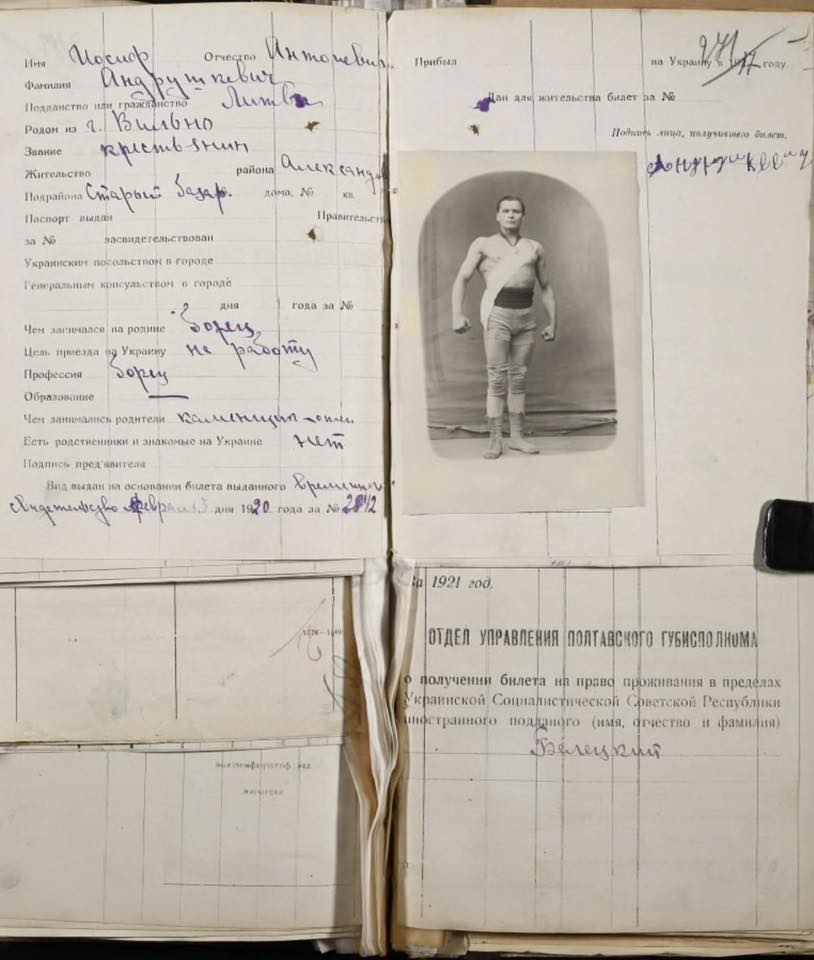 Имя Иосиф Отчество Антоневич
Фамилия Андрушкевич
Подданство или гражданство Литвы
Родом из г. Вильно
Звание крестьянин
Жительство района Александр
Подрайона Старый базар. дома, № кв
Паспорт выдан Правительств
за № засвидетельствован
Украинским посольством в городе
Генеральным консульством в городе
дня года за №
Чем занимался на родине борец
Цель приезда на Украину на работу
Профессия борец
Образование —
Чем занимались родители каменщик
Есть родственники и знакомые на Украине нет
Подпись пред'явителя
Вид выдан на основании билета выданного
дня 1920 года за № 2842
Прибыл на Украину в году
271
Дан для жительства билет за №
Подпись лица, получившего билет.
Андрушкевич
За 1921 год.
ОТДЕЛ УПРАВЛЕНИЯ ПОЛТАВСКОГО ГУБИСПОЛКОМА
о получении билета на право проживания в пределах
Украинской Социалистической Советской Республики
иностранного подданого (имя, отчество и фамилия)
Белецкий